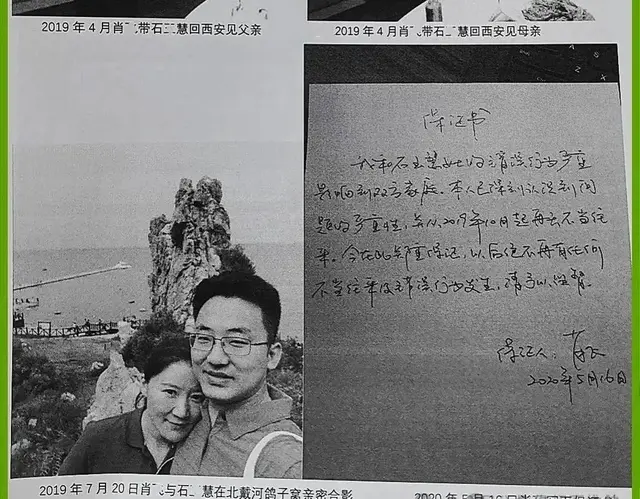 2019 年 4 月肖 带石 慧回西安见父亲
2019 年 4 月肖 带石 慧回西安见母亲
保证书
我和石 慧女士的错误行为严重
影响到双方家庭。本人已深刻认识到问
题的严重性，并从2019年10月起再无不当往
来。今在此郑重保证，以后绝不再有任何
不当往来及错误行为发生，请予以监督。
保证人：肖
2020年5月16日
2019 年 7 月 20 日肖 与石 慧在北戴河鸽子窝亲密合影
2020 年 5 月 16 日肖